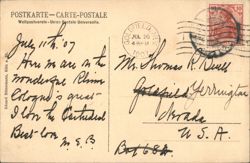 POSTKARTE – CARTE-POSTALE
Weltpostverein – Union Postale Universelle.
July 10th '07
Here we are on the
wonderful Rhine
Cologne's quest
I love the Cathedral
Best love
M.E.B
JUL 26
Mr. Thomas R. Buell
Goldfield Yerrington
Nevada
U.S.A.
Box 684